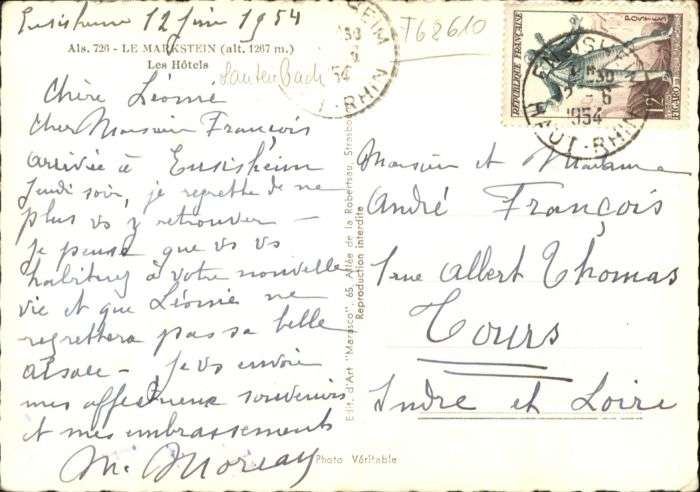 Ensisheim 12 Juin 1954
Als. 726 - LE MARKSTEIN (alt. 1267 m.)
Les Hôtels
Lautenbach
T62610
Chère Léonie
Cher Monsieur François
arrivée à Ensisheim
Jeudi soir, je regrette de ne
plus vs y retrouver —
je pense que vs vs
habituez à votre nouvelle
vie et que Léonie ne
regrettera pas sa belle
Alsace — je vs envoie
mes affectueux souvenirs
et mes embrassements
M. Moreau
Edit. d'Art "Marasco", 65, Allée de la Robertsau, Strasbourg
Reproduction interdite
Photo Véritable
RÉPUBLIQUE FRANÇAISE
POSTES
FIGARO
12F
ENSISHEIM
30
2-6
1954
HAUT-RHIN
Monsieur et Madame
André François
1 rue Albert Thomas
Tours
Indre et Loire